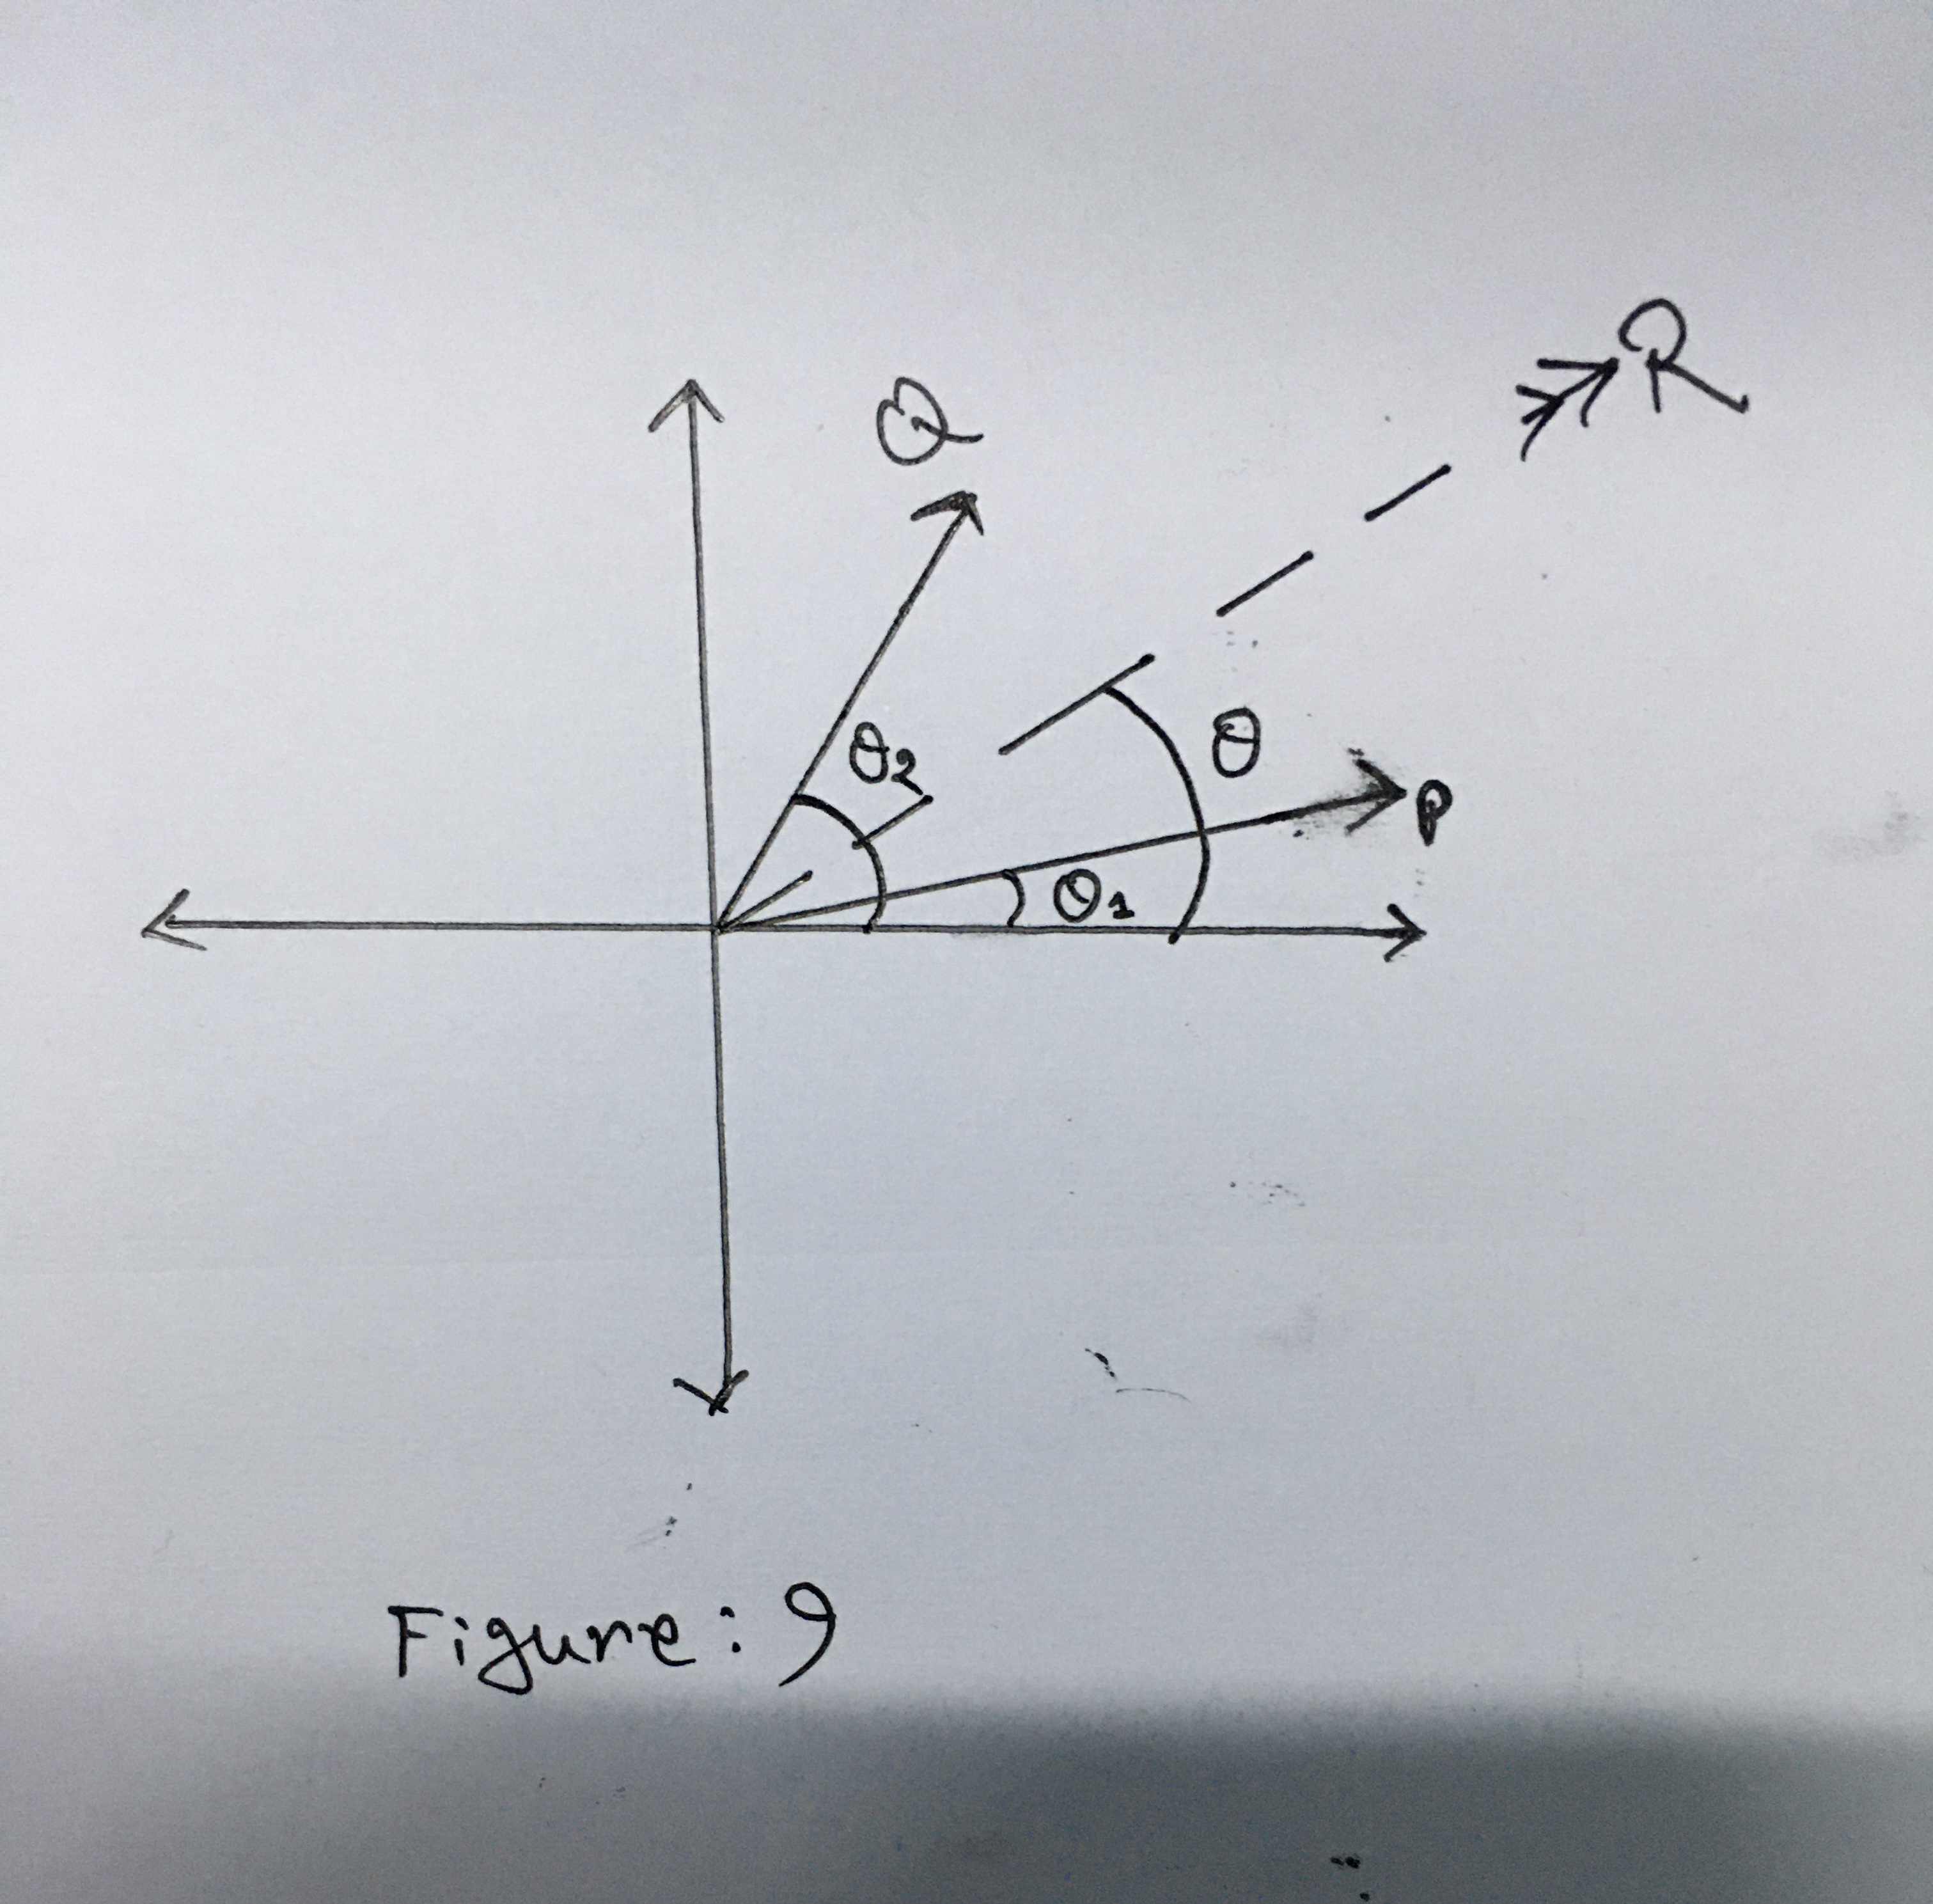 R
Q
θ₂
θ
P
θ₁
Figure: 9